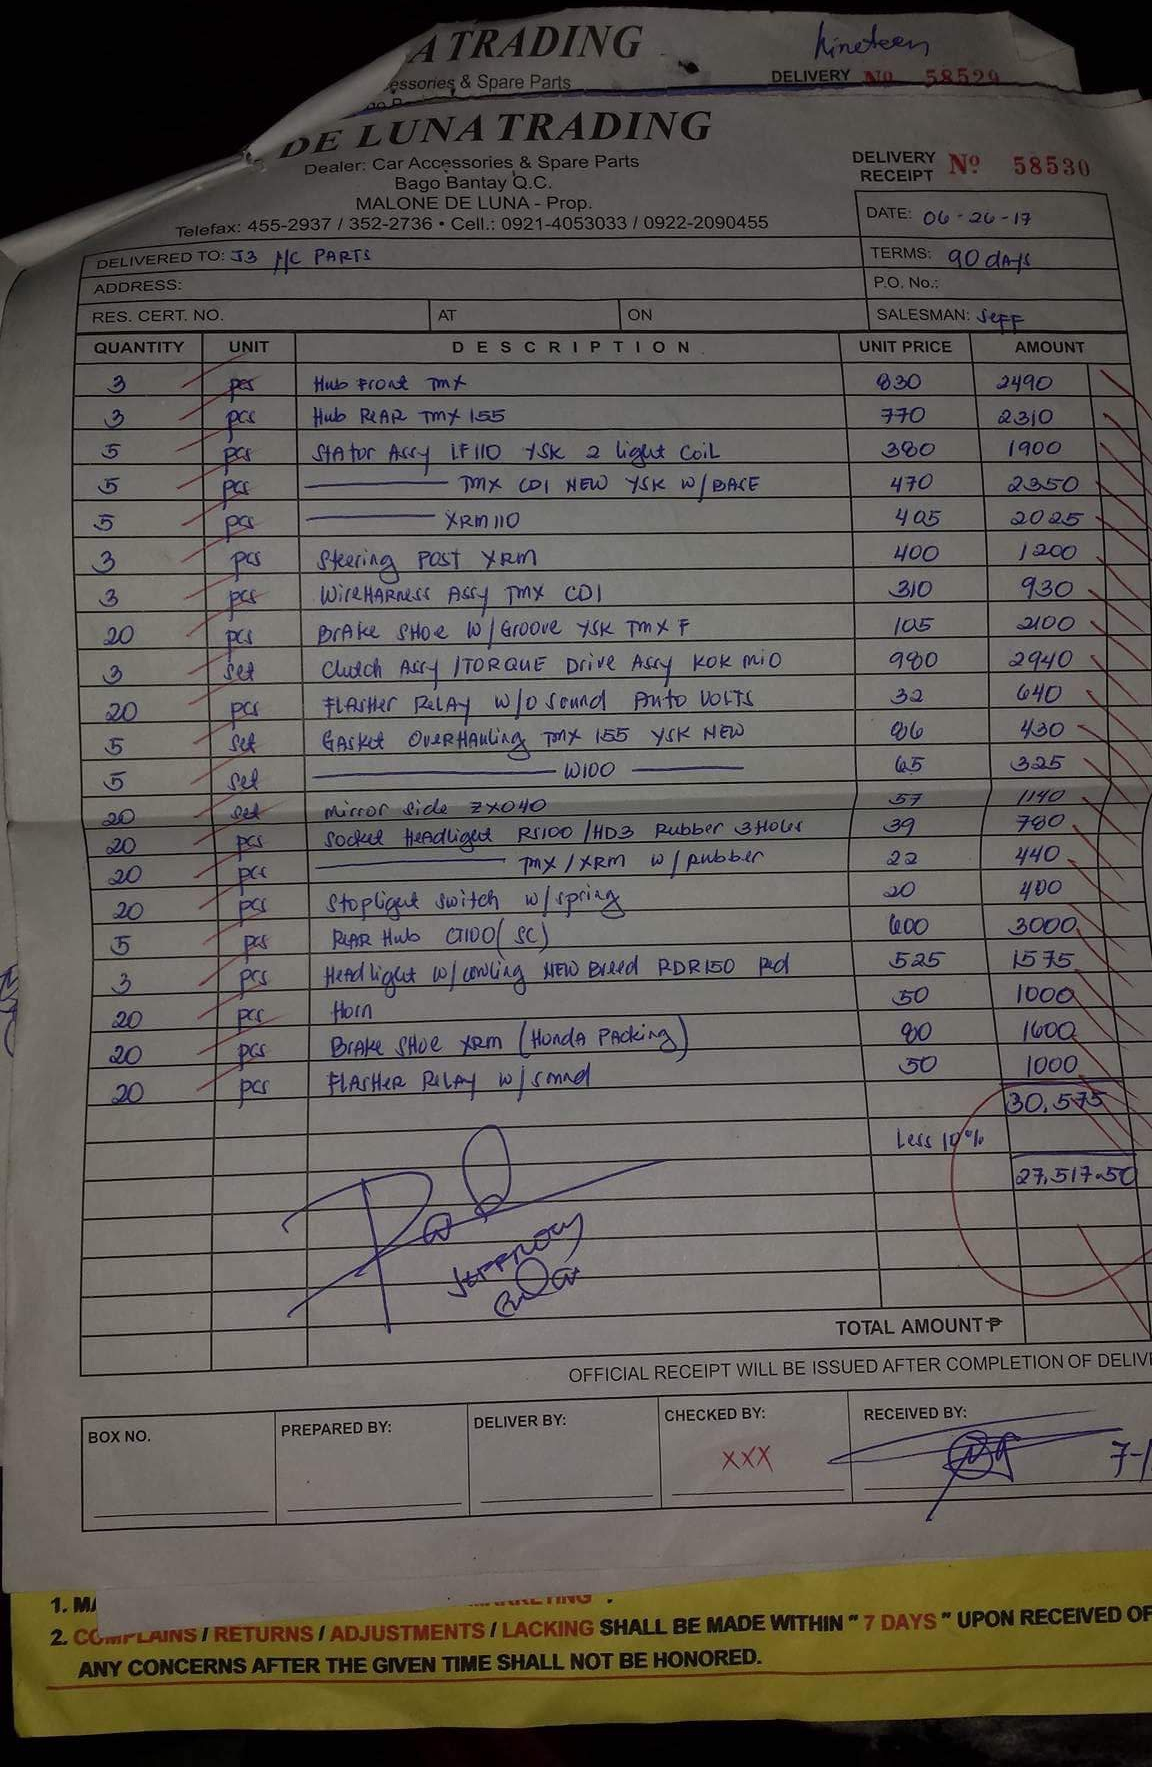 A TRADING
essories & Spare Parts
Nineteen
DELIVERY No 58529
DE LUNA TRADING
Dealer: Car Accessories & Spare Parts
Bago Bantay Q.C.
MALONE DE LUNA - Prop.
Telefax: 455-2937 / 352-2736 • Cell.: 0921-4053033 / 0922-2090455
DELIVERY RECEIPT No 58530
DATE: 06-26-17
DELIVERED TO: J3 M/C PARTS
TERMS: 90 dAYS
ADDRESS:
P.O. No.:
RES. CERT. NO. AT ON SALESMAN: JEFF
QUANTITY UNIT DESCRIPTION UNIT PRICE AMOUNT
3 pcs Hub Front TMX 830 2490
3 pcs Hub REAR TMX 155 770 2310
5 pcs StAtor Assy LF110 YSK 2 light Coil 380 1900
5 pcs TMX CDI NEW YSK W/BASE 470 2350
5 pcs XRM110 405 2025
3 pcs Steering Post XRM 400 1200
3 pcs WireHARness Assy TMX CDI 310 930
20 pcs BrAke SHoe W/Groove YSK TMX F 105 2100
3 set Clutch Assy /TORQUE Drive Assy KOK MIO 980 2940
20 pcs FLASHer RelAy W/O Sound Auto VOLTS 32 640
5 set GAsket OverHAuling TMX 155 YSK NEW 86 430
5 set W100 65 325
20 set Mirror Side ZX040 57 1140
20 pcs Socket HeAdlight RS100/HD3 Rubber 3Holes 39 780
20 pcs TMX/XRM w/Rubber 22 440
20 pcs Stoplight Switch w/spring 20 400
5 pcs REAR Hub CT100(SC) 600 3000
3 pcs HeAdlight w/cowling NEW Breed RDR150 Red 525 1575
20 pcs Horn 50 1000
20 pcs BrAke SHoe XRM (HondA PAcking) 80 1600
20 pcs FLASHer RelAy w/sound 50 1000
30,575
Less 10%
27,517.50
TOTAL AMOUNT ₱
OFFICIAL RECEIPT WILL BE ISSUED AFTER COMPLETION OF DELIVE
BOX NO. PREPARED BY: DELIVER BY: CHECKED BY: RECEIVED BY:
XXX
7-1
1. MA
2. COMPLAINS / RETURNS / ADJUSTMENTS / LACKING SHALL BE MADE WITHIN " 7 DAYS " UPON RECEIVED OF
ANY CONCERNS AFTER THE GIVEN TIME SHALL NOT BE HONORED.